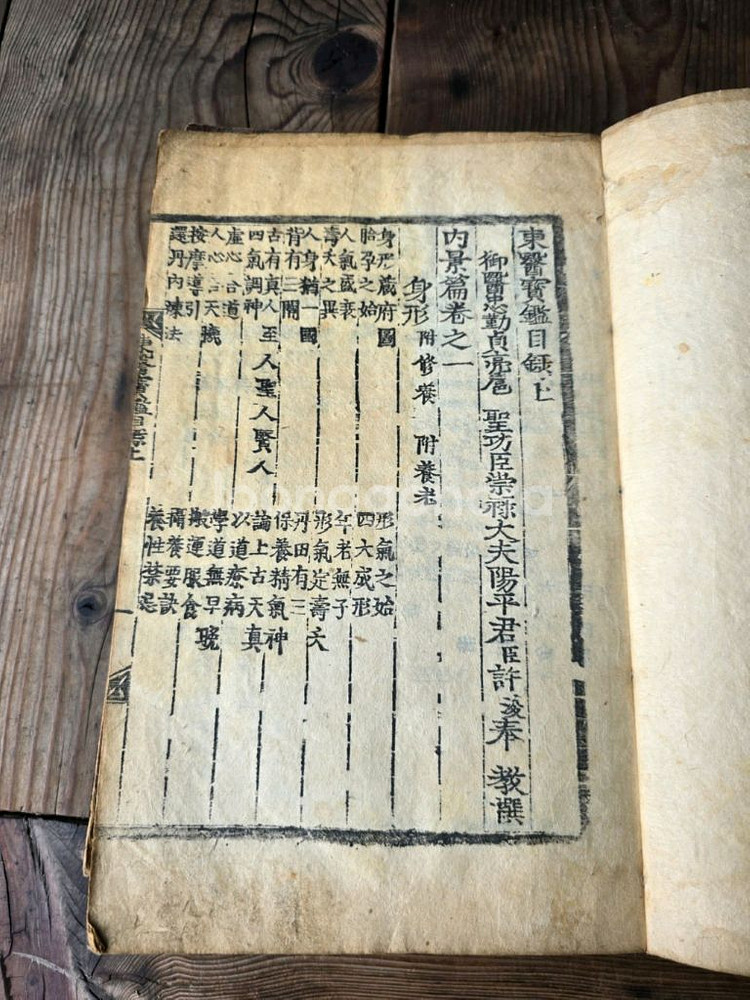 東醫寶鑑目錄上
御醫忠勤貞亮扈 聖功臣崇祿大夫陽平君臣許浚奉 教撰
內景篇卷之一
身形 附修養 附養老
身形藏府圖 形氣之始
胎孕之始 四大成形
人氣盛衰 年老無子
壽夭之異 形氣定壽夭
人身猶一國 丹田有三
背有三關 保養精氣神
古有真人至人聖人賢人 論上古天真
四氣調神 以道療病
虛心合道 學道無早晚
人心合天機 搬運服食
按摩導引 攝養要訣
還丹內煉法 養性禁忌
東醫寶鑑目錄上